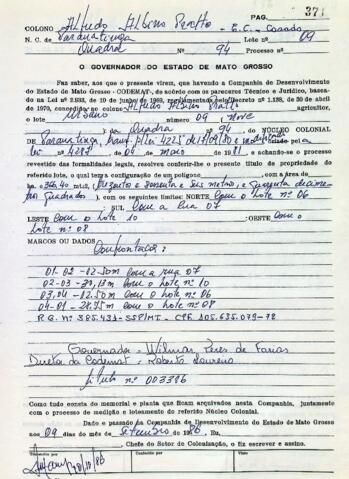 PAG. 371
COLONO Alfredo Albino Peretto - E.C. Casado
N. C. de Paranatinga Lote nº 09
Quadra nº 94 Processo nº
O GOVERNADOR DO ESTADO DE MATO GROSSO
Faz saber, aos que o presente virem, que havendo a Companhia de Desenvolvimento
do Estado de Mato Grosso - CODEMAT, de acôrdo com os pareceres Técnico e Jurídico, baseado
na Lei nº 2.933, de 19 de junho de 1969, regulamentada pelo Decreto nº 1.138, de 30 de abril
de 1970, concedido ao colono agricultor,
o lote urbano número 09 nove
Quadra nº 94 DO NÚCLEO COLONIAL
de Paranatinga, pela
lei nº de 04 de maio de 1981 e achando-se o processo
revestido das formalidades legais, resolveu conferir-lhe o presente título de propriedade do
referido lote, o qual tem a configuração de um polígono com a área de
ha. (Trezentos e sessenta e seis metros, e quarenta decime-
tros Quadrados), com os seguintes limites: NORTE Com o lote nº 06
: SUL Com a Rua 07
LESTE Com o lote 10 : OESTE Com o
lote nº 08
MARCOS OU DADOS Confrontações
01-02 -12.50m com a rua 07
02-03 - com o lote nº 10
03-04 -12.50m com o lote nº 06
04-01 - com o lote nº 08
R.G. nº 385.431-SSP/MT - CPF. 105.635.079-72
Governador - Wilmar Peres de Farias
Diretor da Codemat - Roberto Loureiro
Titulo nº 003316
Como tudo consta do memorial e planta que ficam arquivados nesta Companhia, juntamente
com o processo de medição e loteamento do referido Núcleo Colonial.
Dado e passado na Companhia de Desenvolvimento do Estado de Mato Grosso
aos 09 dias do mês de Setembro de 1986. Eu,
Chefe do Setor de Colonização, o fiz escrever e assino.
Conferido por Visto